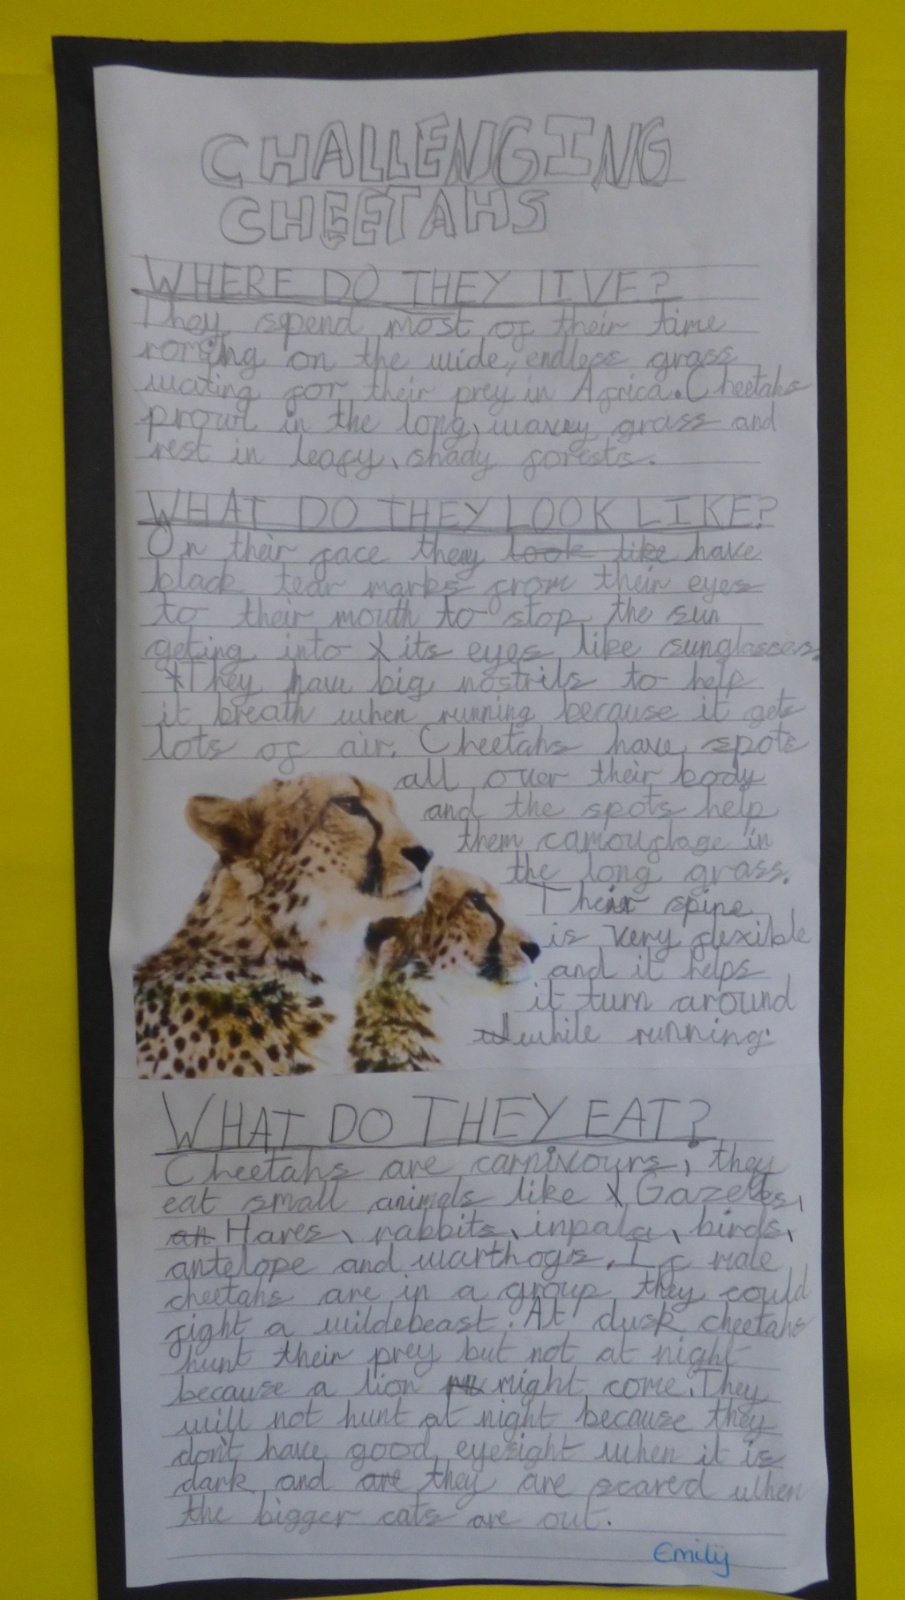 CHALLENGING
CHEETAHS
WHERE DO THEY LIVE?
They spend most of their time
on the wide, endless grass
waiting for their prey in Africa. Cheetahs
prowl in the long, wavey grass and
rest in leafy, shady forests.
WHAT DO THEY LOOK LIKE?
On their face they look like have
black tear marks from their eyes
to their mouth to stop the sun
geting into its eyes like sunglasses.
*They have big nostrils to help
it breath when running because it gets
lots of air. Cheetahs have spots
all over their body
and the spots help
them camouflage in
the long grass.
Their spine
is very flexible
and it helps
it turn around
while running.
WHAT DO THEY EAT?
Cheetahs are carnivours, they
eat small animals like Gazelles,
Hares, rabbits, inpala, birds,
antelope and warthogs. If male
cheetahs are in a group they could
fight a wildebeast. At dusk cheetahs
hunt their prey but not at night
because a lion might come. They
will not hunt at night because they
don't have good eyesight when it is
dark and are they are scared when
the bigger cats are out.
Emily